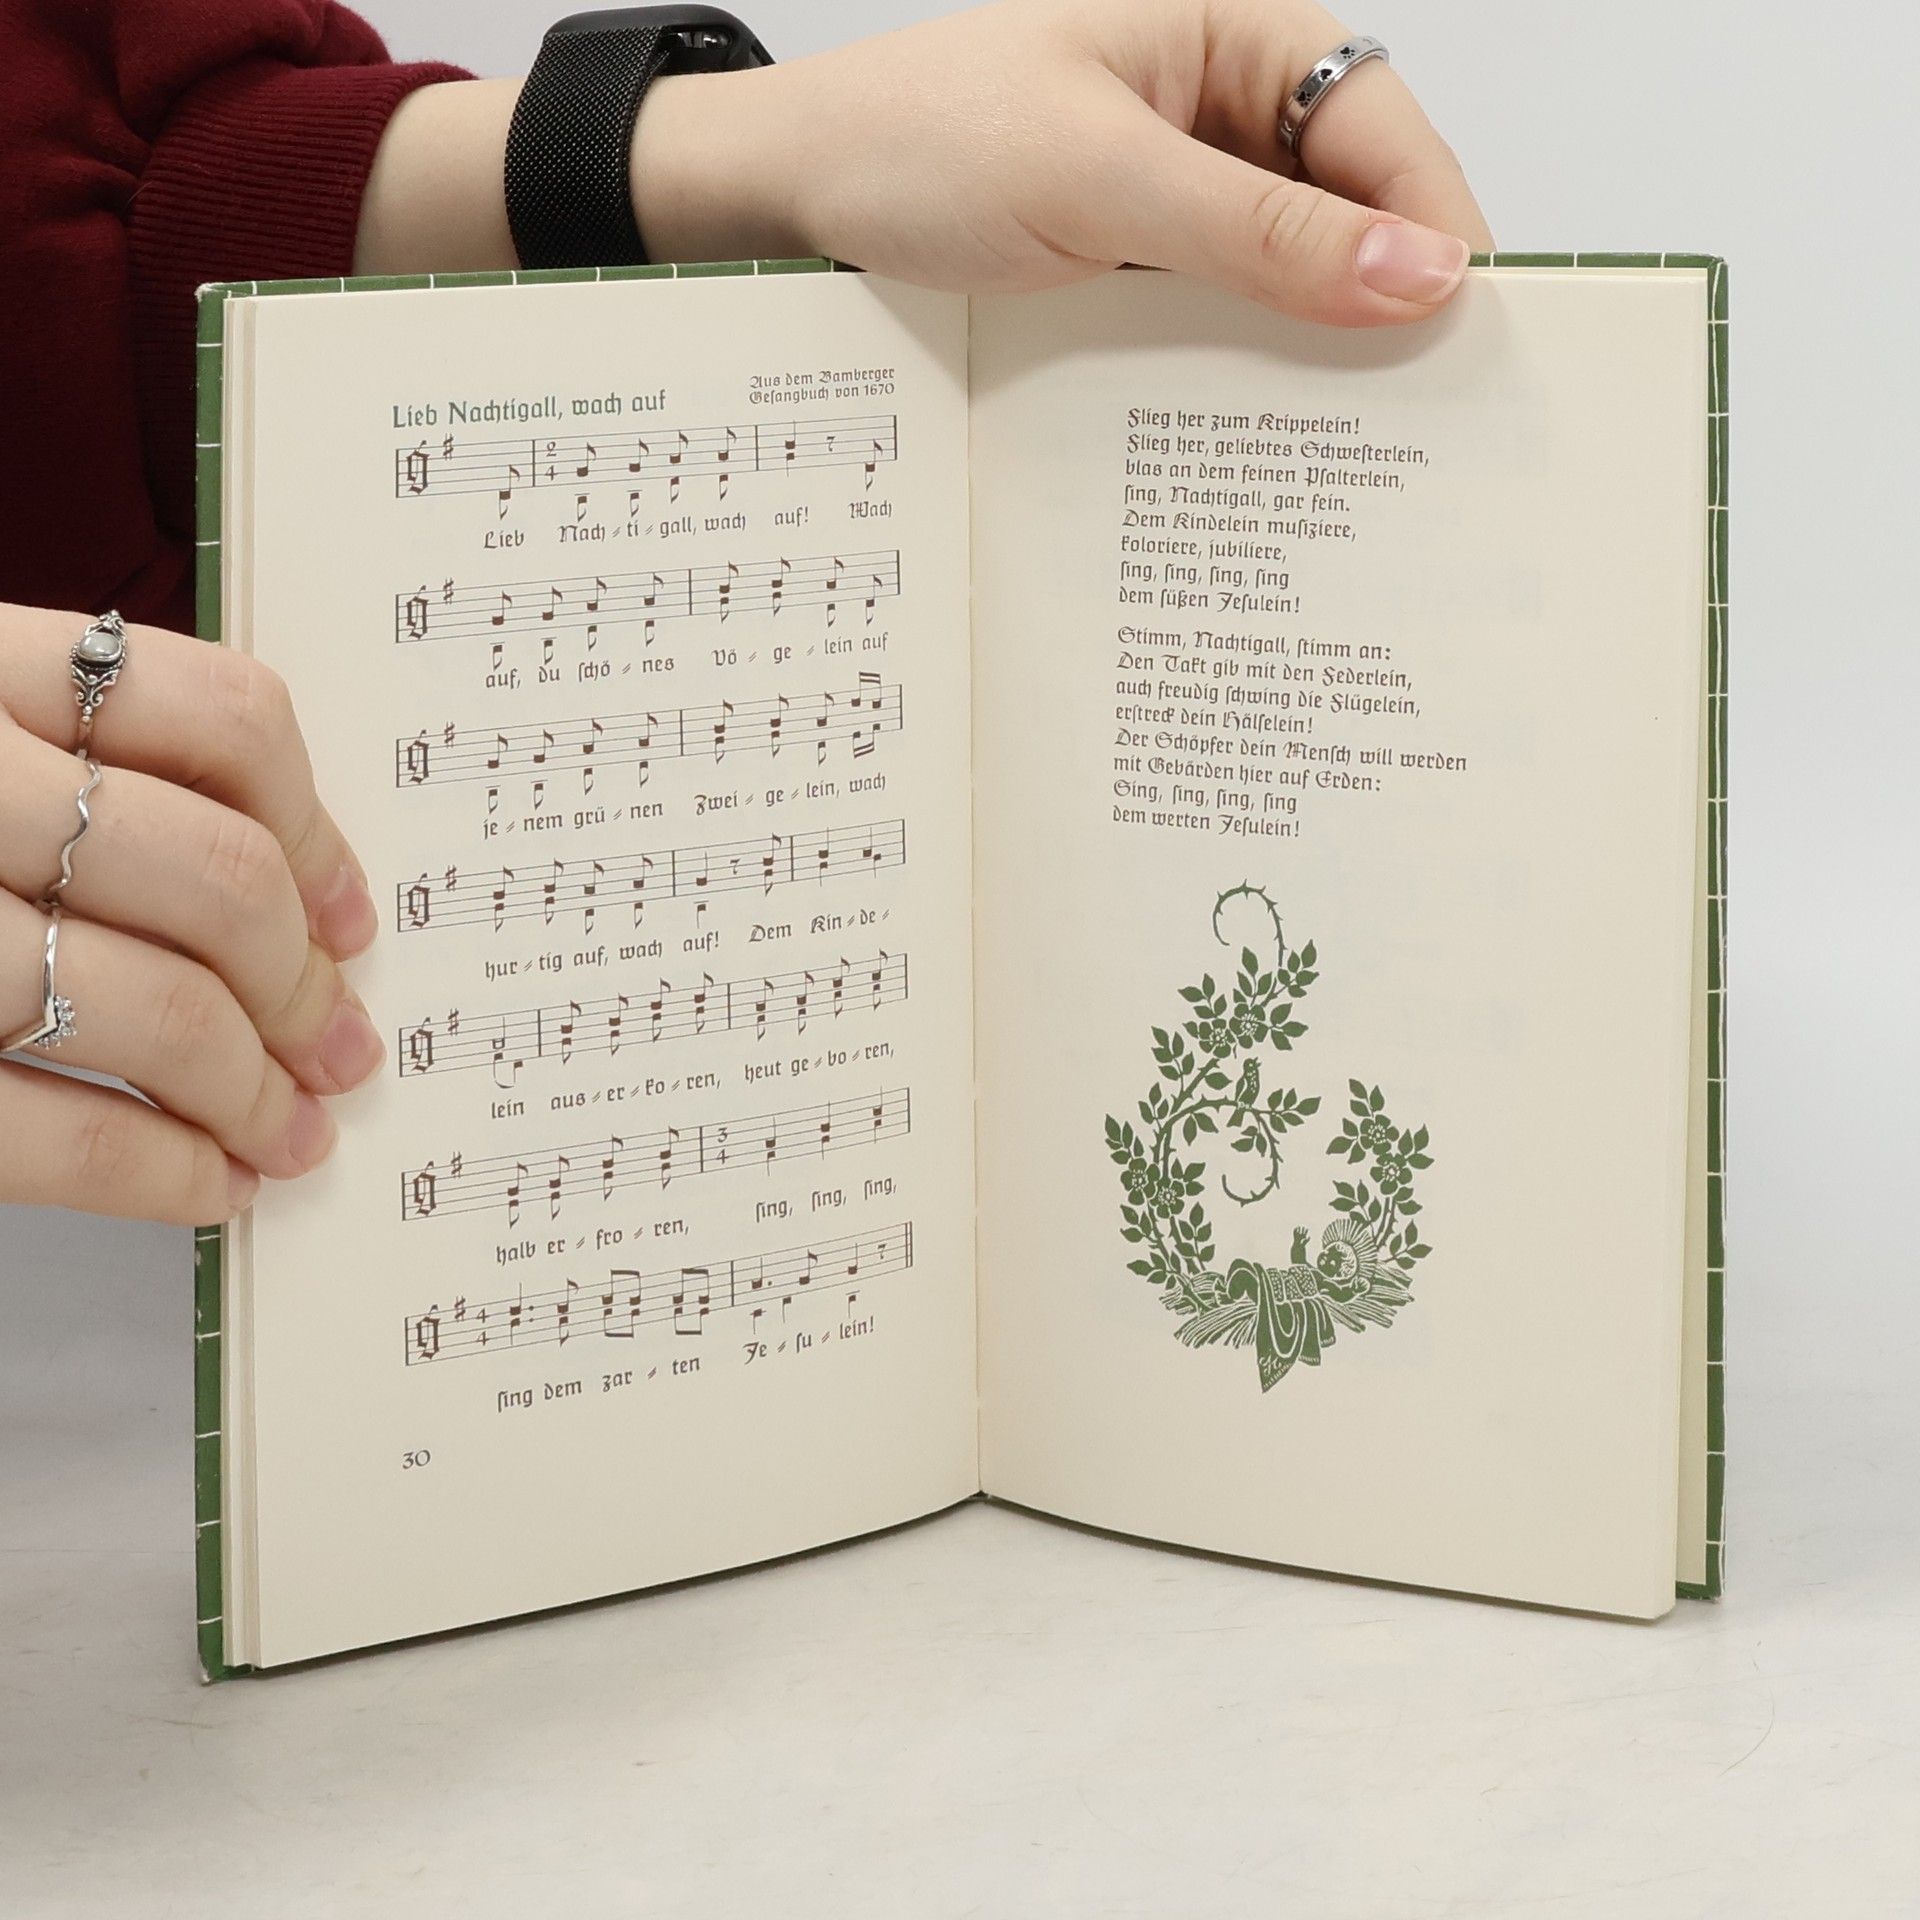 Lieb Nachtigall, wach auf
Aus dem Bamberger
Gesangbuch von 1670
2
4
Lieb Nach-ti-gall, wach auf! Wach
auf, du schö-nes Vö-ge-lein auf
je-nem grü-nen Zwei-ge-lein, wach
hur-tig auf, wach auf! Dem Kin-de-
lein aus-er-ko-ren, heut ge-bo-ren,
3
4
halb er-fro-ren, sing, sing, sing,
4
4
sing dem zar-ten Je-su-lein!
30
Flieg her zum Krippelein!
Flieg her, geliebtes Schwesterlein,
blas an dem feinen Psalterlein,
sing, Nachtigall, gar fein.
Dem Kindelein musiziere,
koloriere, jubiliere,
sing, sing, sing, sing
dem süßen Jesulein!
Stimm, Nachtigall, stimm an:
Den Takt gib mit den Federlein,
auch freudig schwing die Flügelein,
erstreck dein Hälselein!
Der Schöpfer dein Mensch will werden
mit Gebärden hier auf Erden:
Sing, sing, sing, sing
dem werten Jesulein!